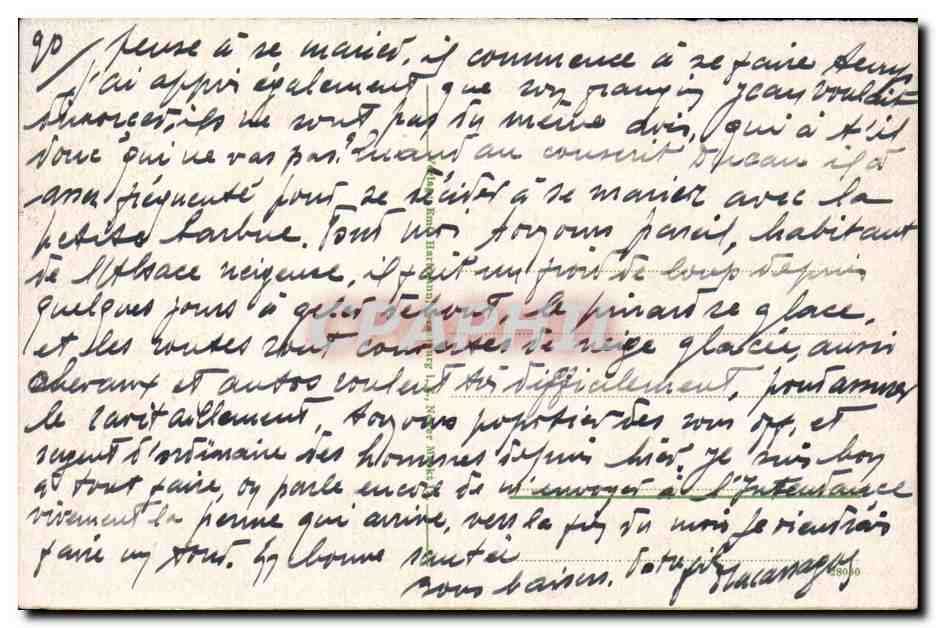 90/ pense à se marier, il commence à se faire temps
J'ai appris également que son frangin Jean voulait
divorcer, ils ne sont pas du même avis, qui a t'il
donc qui ne vas pas? Quand au conscrit Ducau il a
assez fréquenté pour se décider à se marier avec la
petite barbue. Pour moi toujours pareil, habitant
de l'Alsace neigeuse, il fait un froid de loup depuis
quelques jours à geler debout, le pinard se glace,
et les routes sont couvertes de neige glacée, aussi
chevaux et autos roulent très difficilement, pour assurer
le ravitaillement, toujours popotier des sous off, et
sergent d'ordinaire des hommes depuis hier, je suis bon
à tout faire, on parle encore de m'envoyer à l'Intendance
vivement la perme qui arrive, vers la fin du mois je viendrais
faire un tour. En bonne santé
vous baisers. Votre fils
CPAPHIL
28050